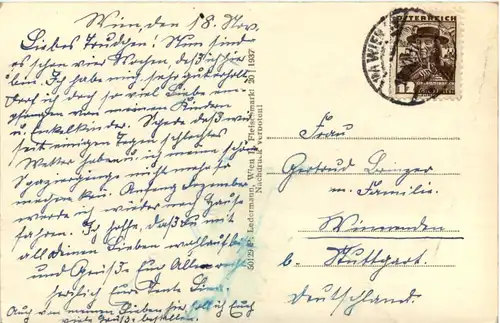 Wien, den 18. Nov.
Liebes Trudchen! Nun sind
es schon vier Wochen, daß ich hier
bin. Ich habe mich sehr gut erholt.
Doch ich doch so viel Liebe em-
pfangen von meinen Kindern
u. Enkelkinder. Schade daß wir
seit einigen Tagen schlechtes
Wetter haben u. ich meine schön
Spaziergänge nicht mehr so
machen kann. Anfang Dezember
werde ich wieder nach Hause
fahren. Ich hoffe, daß du mit
all deinen Lieben wohlauf bist
und Grüße für Alle recht
herzlich Eure Tante Lina.
Auch von meinen Lieben hier soll ich Euch
viele Grüße bestellen.
5029 P. Ledermann, Wien I., Fleischmarkt 20 / 1937
Nachdruck verboten!
WIEN
ÖSTERREICH
12
Frau
Gertrud
m. Familie.
Winnenden
b. Stuttgart.
Deutschland.